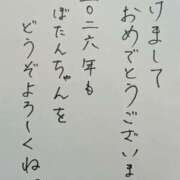 けまして
おめでとうございま
二〇二六年も
ぼたんちゃんを
どうぞよろしくね。